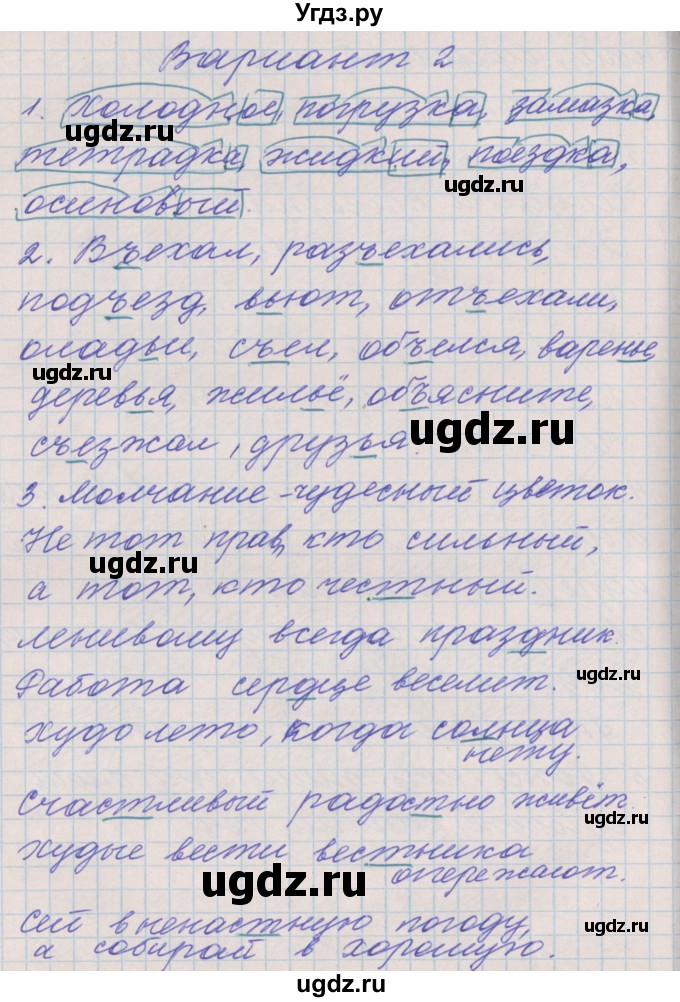 Угдз.ру
Вариант 2
1. Холодное, погрузка, замазка,
тетрадка, жидкий, поездка,
осиновый.
2. Въехал, разъехались,
подъезд, вьют, отъехали,
оладьи, съел, объелся, варенье,
деревья, жильё, объясните,
съезжал, друзья.
3. Молчание - чудесный цветок.
Не тот прав, кто сильный,
а тот, кто честный.
Ленивому всегда праздник.
Работа сердце веселит.
Худо лето, когда солнца
нету.
Счастливый радостно живёт.
Худые вести вестника
опережают.
Сей в ненастную погоду,
а собирай в хорошую.
ugdz.ru
ugdz.ru
ugdz.ru
ugdz.ru
ugdz.ru
ugdz.ru
ugdz.ru
ugdz.ru
ugdz.ru
ugdz.ru
ugdz.ru